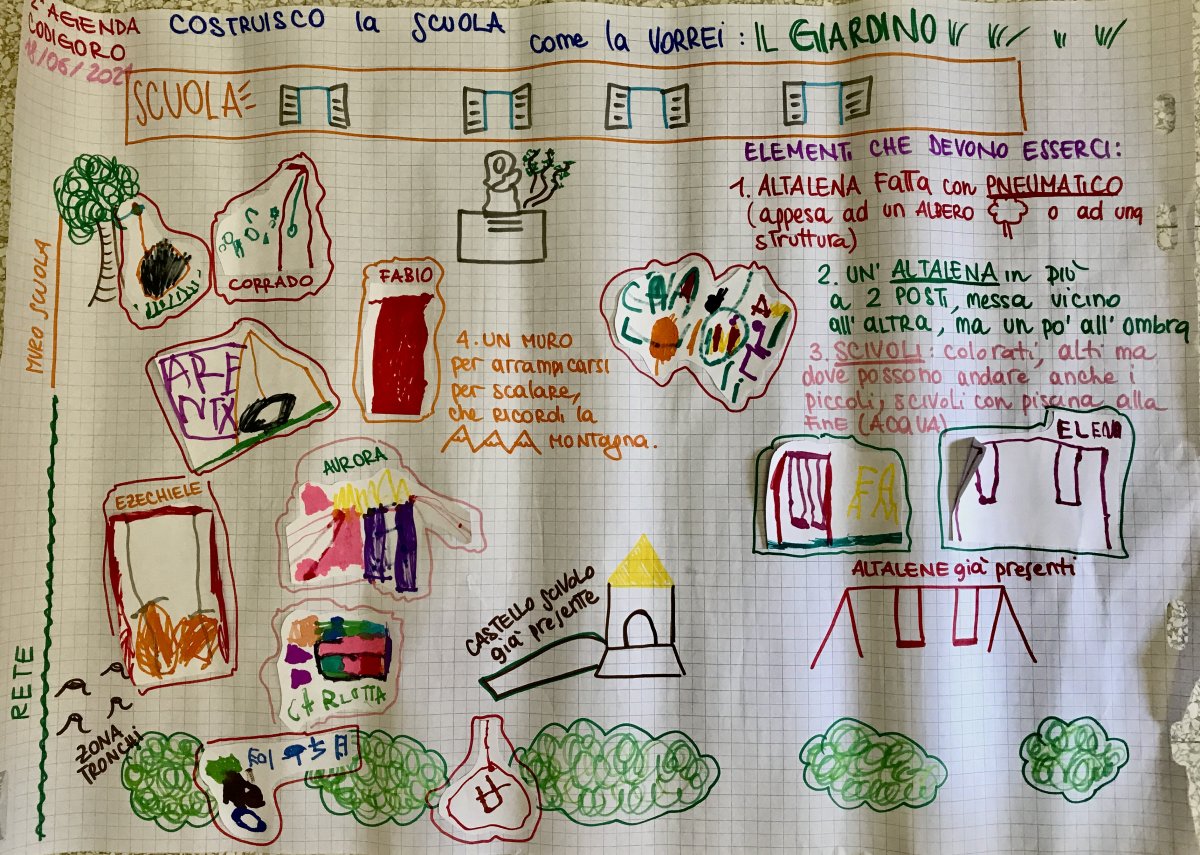 2ª AGENDA
CODIGORO
COSTRUISCO la SCUOLA come la VORREI: IL GIARDINO
SCUOLA
ELEMENTI CHE DEVONO ESSERCI:
1. ALTALENA FATTA con PNEUMATICO
(appesa ad un ALBERO o ad una
struttura)
2. UN' ALTALENA in più
a 2 POSTI, messa vicino
all'ALTRA, ma un po' all'ombra
3. SCIVOLI: colorati, alti ma
dove possono andare anche i
piccoli, scivoli con piscina alla
fine (ACQUA)
MURO SCUOLA
CORRADO
FABIO
4. UN MURO
per arrampicarsi
per scalare,
che RICORDI la
MONTAGNA.
ELENA
EZECHIELE
AURORA
ALTALENE già presenti
CASTELLO SCIVOLO
già presente
RETE
ZONA
TRONCHI